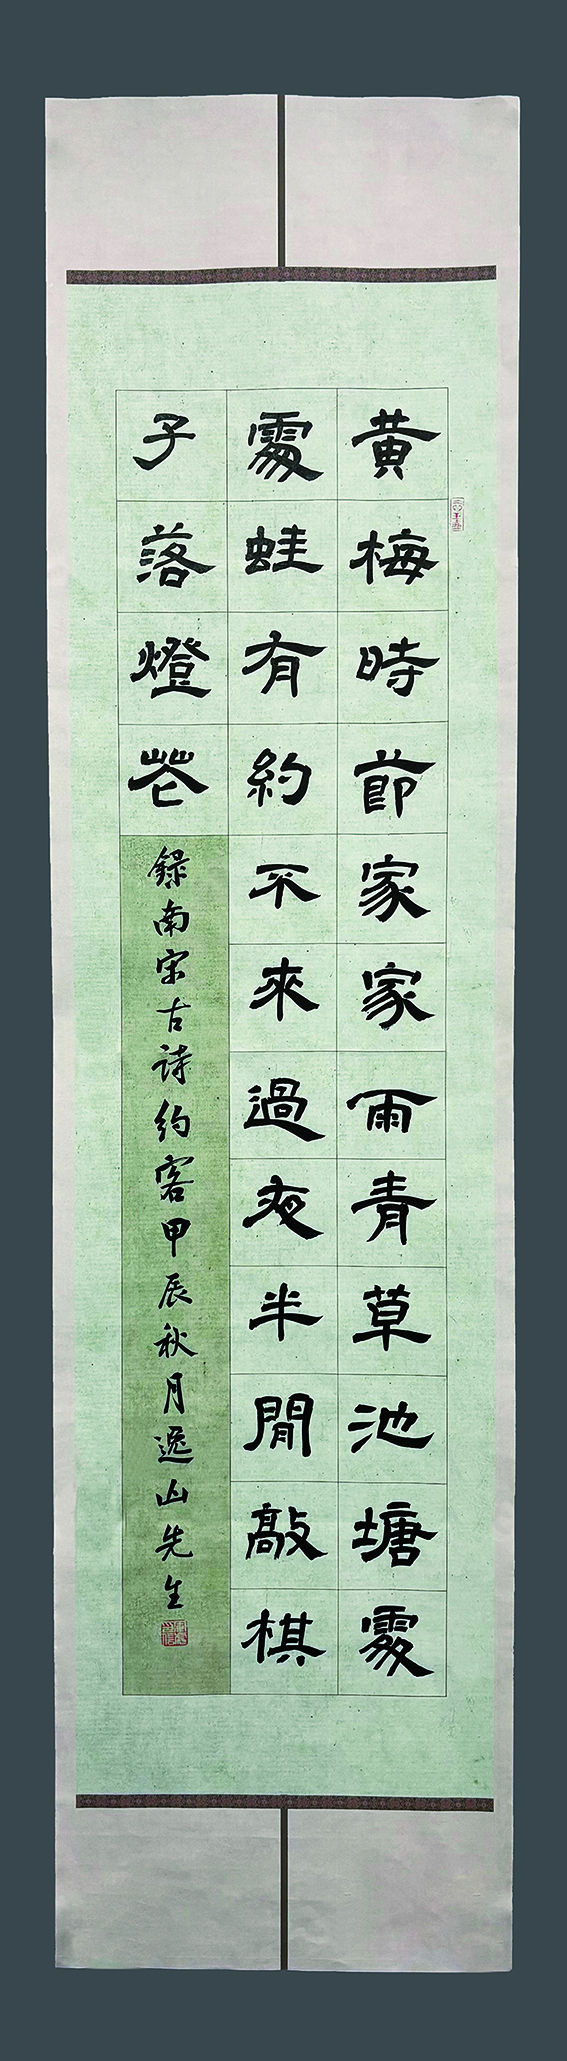 黄梅時節家家雨青草池塘處
處蛙有約不來過夜半閒敲棋
子落燈花
録南宋古詩約客甲辰秋月逸山先生